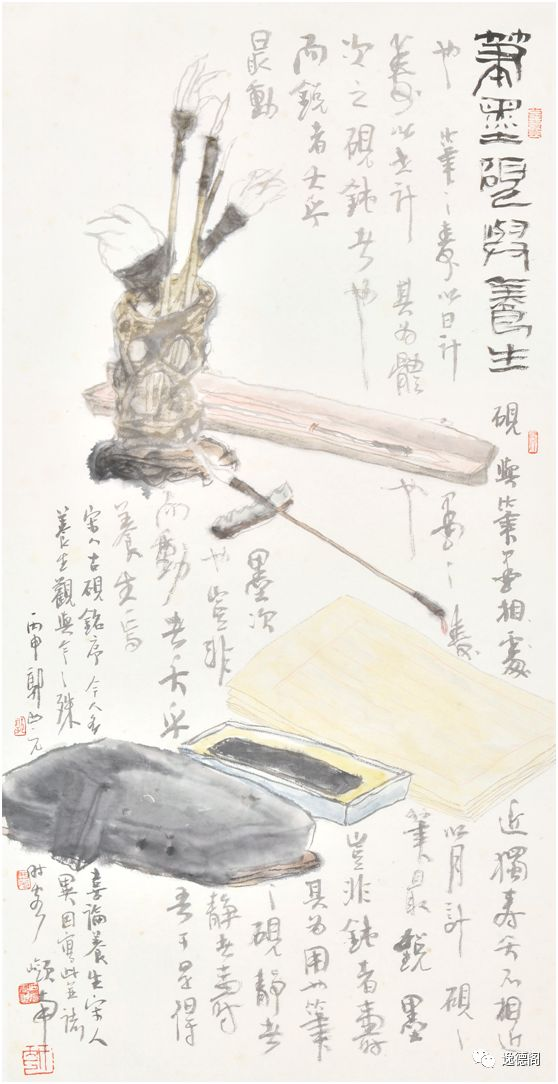 筆墨硯與養生
硯與筆墨相處
近獨壽夭不相近
也筆之壽以日計
墨之壽
以月計硯之
壽以世計其為體
也
筆最銳墨
次之硯鈍者也
豈非鈍者壽
而銳者夭乎
其為用也筆
最動
墨次
之硯靜者
也豈非
靜者壽
而動者夭乎
吾于是得
養生焉
宋人古硯銘序今人多
喜論養生宋人
養生觀與今之殊
異因寫此並識
丙申郭西元
時客嶺南
逸德阁